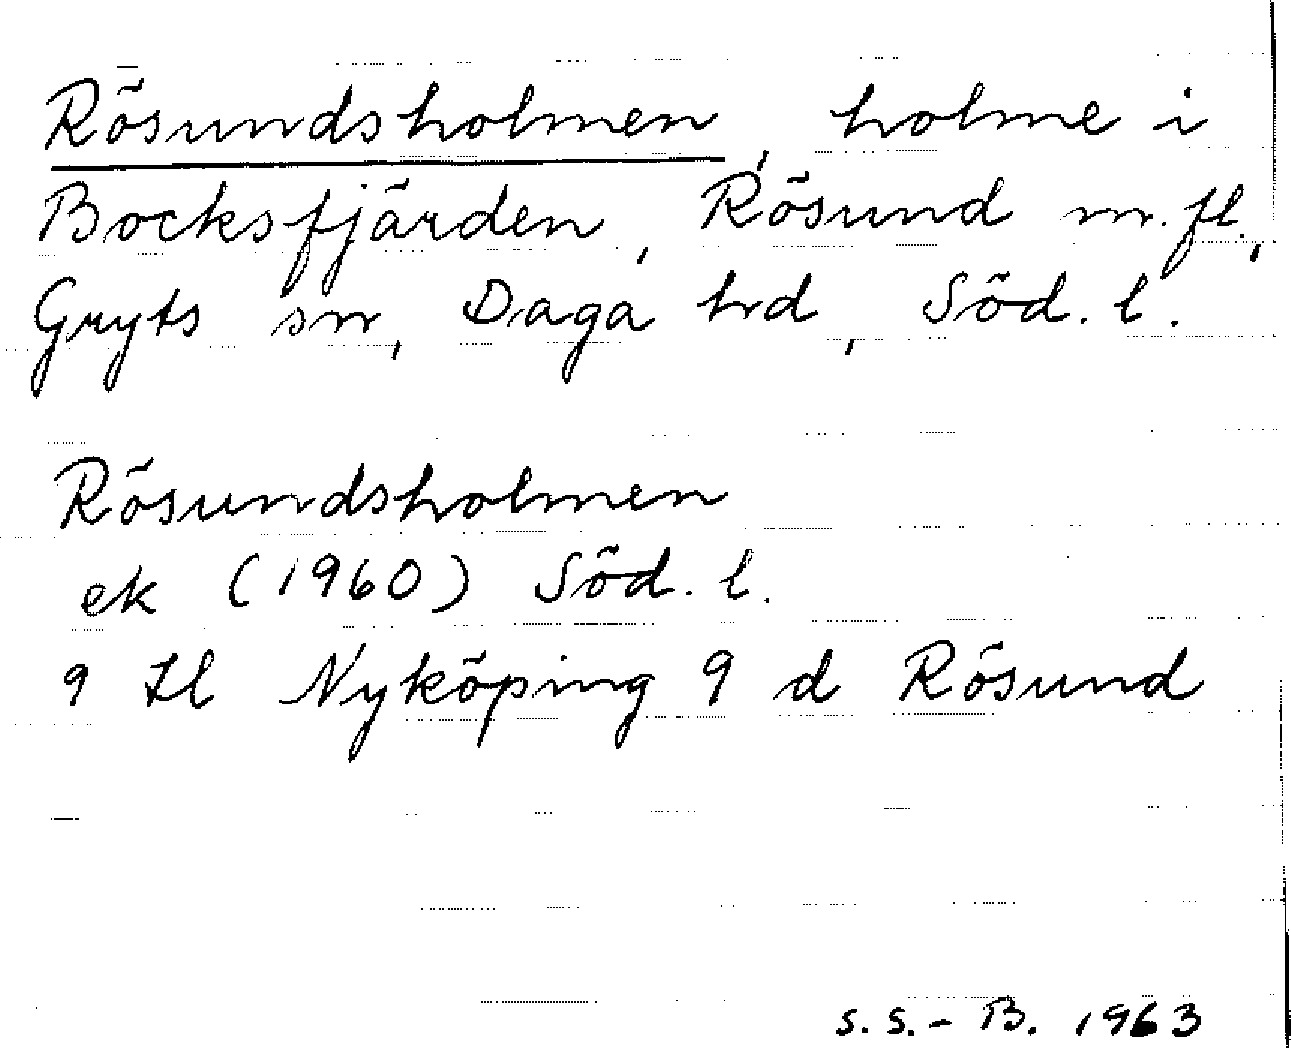 Rösundsholmen, holme i
Bocksfjärden, Rösund m.fl.,
Gryts sn, Daga hd, Söd. l.
Rösundsholmen
ek (1960) Söd. l.
9 Hl Nyköping 9 d Rösund
S.S.-B. 1963